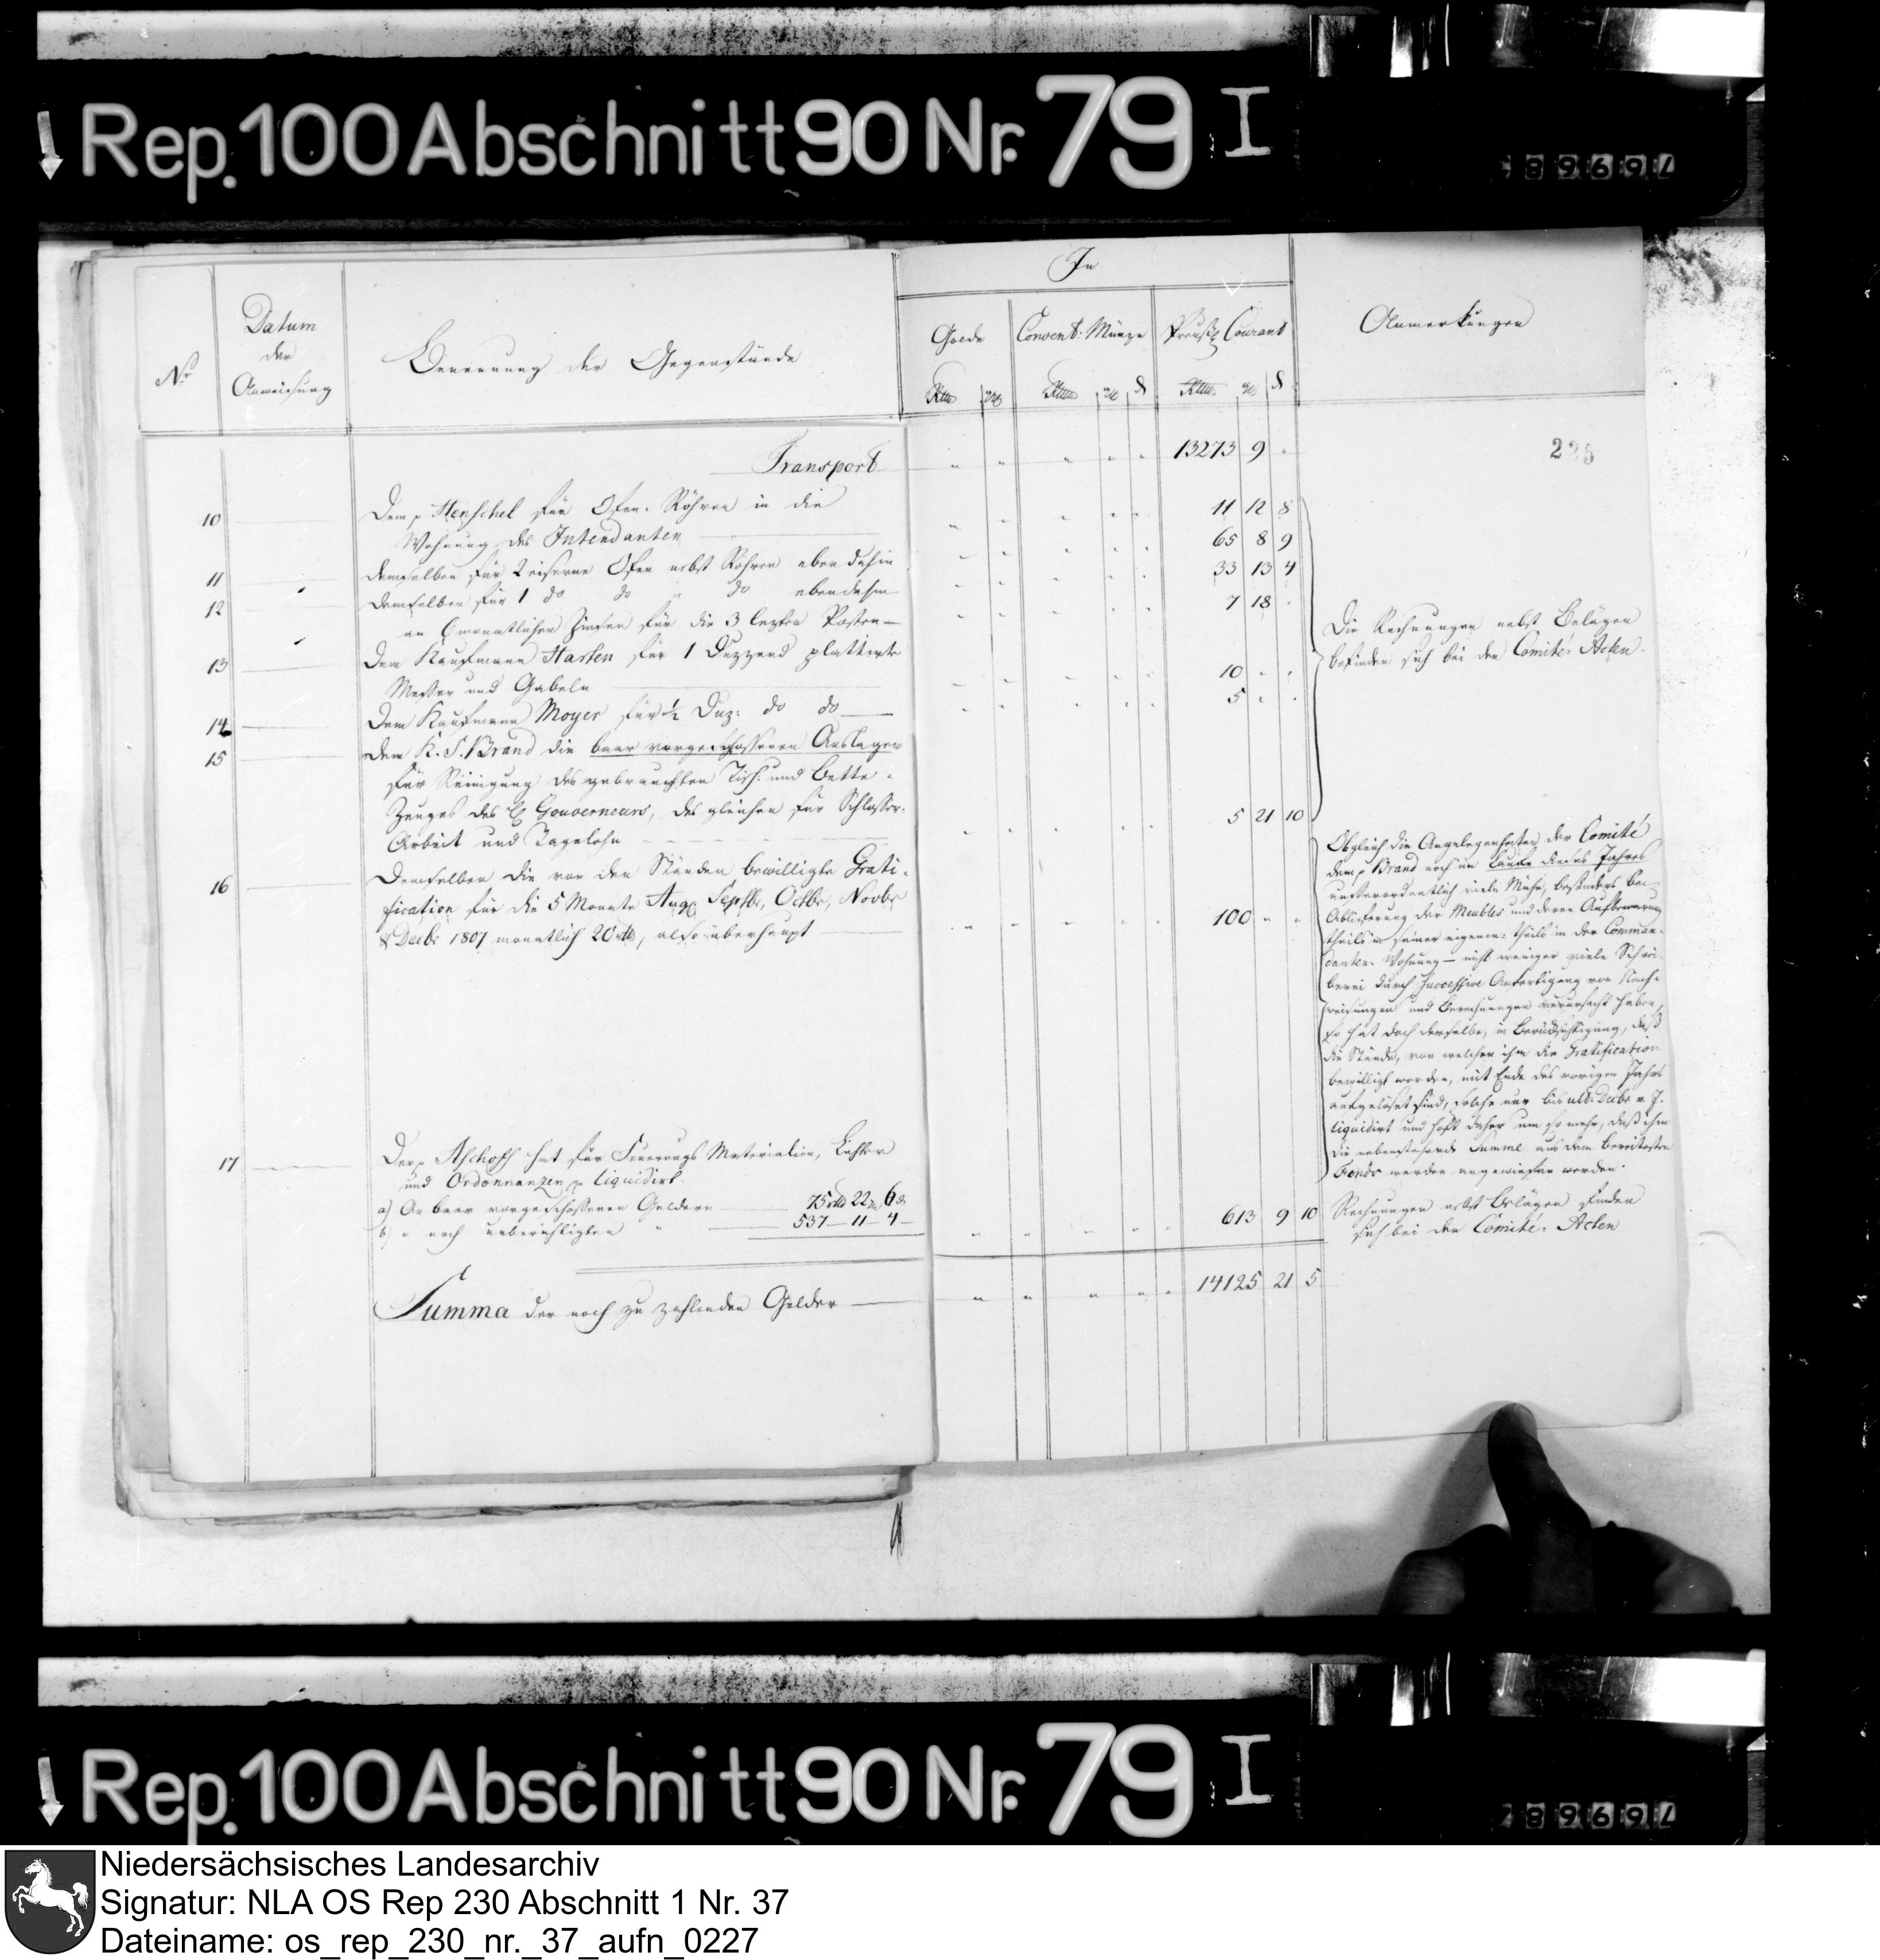 Rep. 100 Abschnitt 90 Nr. 79 I
In
Nr
Datum
der
Anweisung
Benennung der Gegenstände
Golde
Convent: Münze
Preuß. Courant
Anmerkungen
Transport
13273 9
235
10 Dem p Henschel für Ofen-Röhren in die
Wohnung des Intendanten
11 12 8
11 demselben für 2 eiserne Ofen nebst Röhren eben dahin
65 8 9
12 demselben für 1 do do " do ebendahin
33 13 4
an 6 monatlichen Zinsen für die 3 lezten Posten
7 18
13 Dem Kaufmann Harten für 1 Duzzend plattirte
Messer und Gabeln
10
14 Dem Kaufmann Moyer für ½ Duz: do do
5
15 Dem K. S. Brand die baar vorgeschossenen Auslagen
für Reinigung des gebrauchten Tisch- und Bette-
Zeuges des Gouverneurs, des gleichen für Schlosser-
Arbeit und Tagelohn
5 21 10
Die Rechnungen nebst Belägen
befinden sich bei den Comité-Acten.
16 Demselben die von den Ständen bewilligte Grati-
fication für die 5 Monate Aug, Septbr, Octbr, Novbr
& Decbr 1807 monatlich 20 rtlr, also überhaupt
100
Obgleich die Angelegenheiten der Comité
dem p Brand noch im Laufe dieses Jahres
ausserordentlich viele Mühe, besonders bei
Ablieferung der Meubles und deren Aufbewarung
theils in seiner eigenen- theils in der Comman-
danten-Wohnung – nicht weniger viele Schrei-
berei durch successive Anfertigung von Nach-
weisungen und Berechnungen verursacht haben,
so hat doch derselbe, in Berücksichtigung, daß
die Stände, von welchen ihm die Gratification
bewilligt worden, mit Ende des vorigen Jahrs
aufgelöset sind, solche nur bis ult: Decbr v. J.
liquidirt und hoft daher um so mehr, daß ihm
die nebenstehende Summe aus dem bereitesten
Fonds werden angewiesen werden.
17 Der p Aschoff hat für Feuerungs Materialien, Lichter
und Ordonnanzen p liquidirt.
a) An baar vorgeschossenen Geldern 75 rtlr 22 6
b) " noch unberichtigten " 537 – 11 – 4 –
613 9 10
Rechnungen nebst Belägen finden
sich bei den Comité-Acten
Summa der noch zu zahlenden Gelder
14125 21 5
Rep. 100 Abschnitt 90 Nr. 79 I
Niedersächsisches Landesarchiv
Signatur: NLA OS Rep 230 Abschnitt 1 Nr. 37
Dateiname: os_rep_230_nr._37_aufn_0227